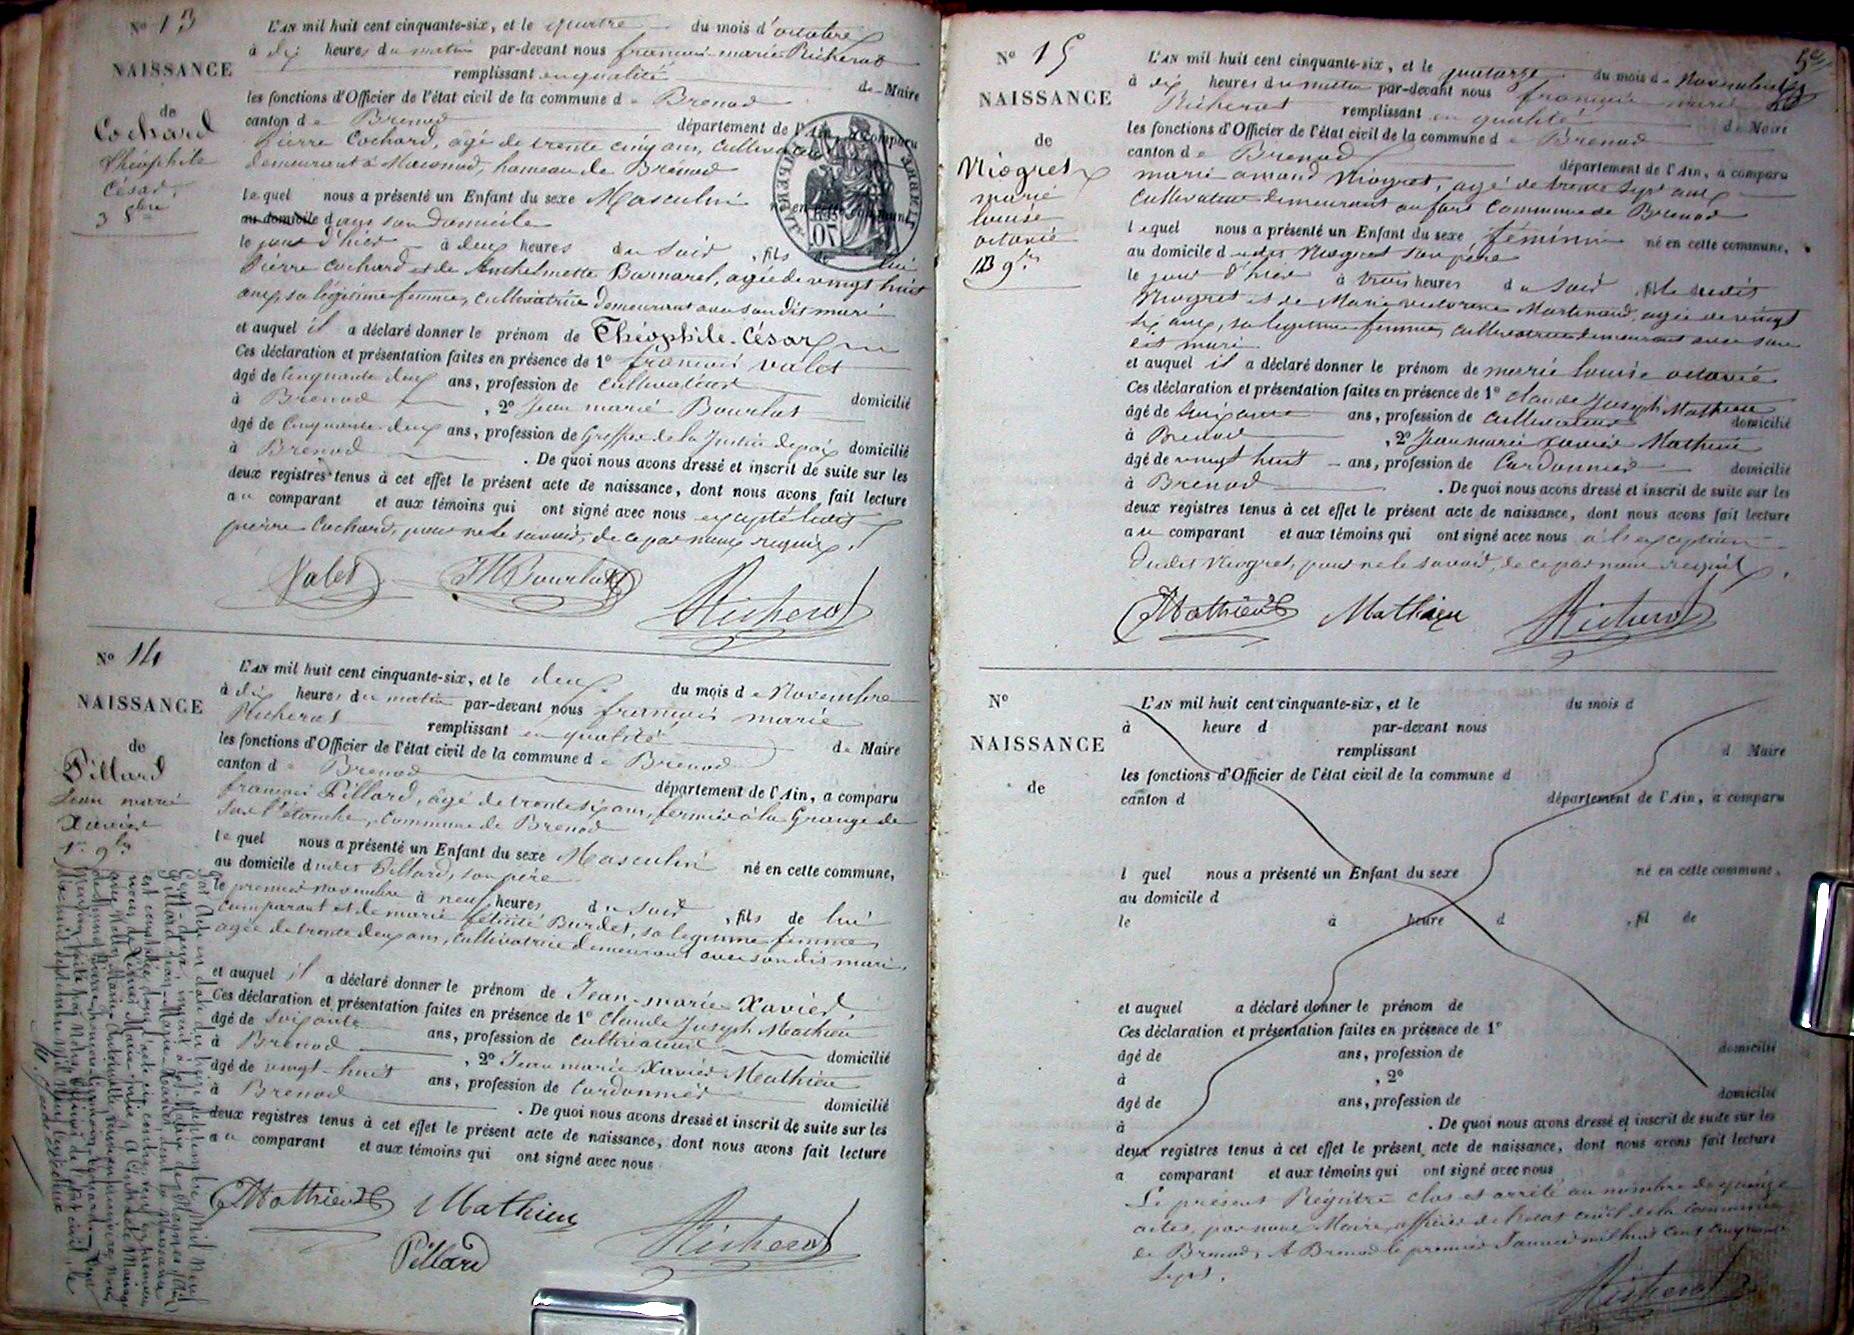 N° 13
NAISSANCE
de
Cochard
Théophile
César
3 8bre
L'AN mil huit cent cinquante-six, et le quatre du mois d'octobre
à dix heures du matin par-devant nous françois-marie Richerot
remplissant en qualité de Maire
les fonctions d'Officier de l'état civil de la commune de Brenod
canton de Brenod département de l'Ain, a comparu
Pierre Cochard, agé de trente cinq ans, cultivateur
demeurant à Maconod, hameau de Brénod
lequel nous a présenté un Enfant du sexe Masculin né en cette commune,
au domicile dans son domicile
le jour d'hier à deux heures du soir, fils de lui
Pierre Cochard et de Anthelmette Barnarel, agée de vingt huit
ans, sa légitime femme, cultivatrice demeurant avec son dit mari
et auquel il a déclaré donner le prénom de Théophile-César
Ces déclaration et présentation faites en présence de 1° françois Valet
âgé de Cinquante deux ans, profession de cultivateur domicilié
à Brenod, 2° Jean marie Bourlot
âgé de Cinquante deux ans, profession de Greffier de la Justice de paix domicilié
à Brenod. De quoi nous avons dressé et inscrit de suite sur les
deux registres tenus à cet effet le présent acte de naissance, dont nous avons fait lecture
au comparant et aux témoins qui ont signé avec nous excepté ledit
pierre Cochard, pour ne le savoir, de ce par nous requis.
Valet Richerot
N° 14
NAISSANCE
de
Pillard
Jean marie
Xavier
1er 9bre
L'AN mil huit cent cinquante-six, et le deux du mois de Novembre
à dix heures du matin par-devant nous françois marie
Richerot remplissant en qualité de Maire
les fonctions d'Officier de l'état civil de la commune de Brenod
canton de Brenod département de l'Ain, a comparu
françois Pillard, âgé de trente six ans, fermier à la Grange de
sur l'étanche, commune de Brenod
lequel nous a présenté un Enfant du sexe Masculin né en cette commune,
au domicile dudit Pillard, son père
le premier novembre à neuf heures du soir, fils de lui
comparant et de marie félicité Burdet, sa légitime femme,
agée de trente deux ans, cultivatrice demeurant avec son dit mari,
et auquel il a déclaré donner le prénom de Jean-marie Xavier,
Ces déclaration et présentation faites en présence de 1° Claude Joseph Mathieu
âgé de soixante ans, profession de cultivateur domicilié
à Brenod, 2° Jean marie Xavier Mathieu
âgé de vingt-huit ans, profession de Cordonnier domicilié
à Brenod. De quoi nous avons dressé et inscrit de suite sur les
deux registres tenus à cet effet le présent acte de naissance, dont nous avons fait lecture
au comparant et aux témoins qui ont signé avec nous
Mathieu Mathieu Richerot
Pillard
N° 15
NAISSANCE
de
Niogret
marie
louise
octavie
13 9bre
L'AN mil huit cent cinquante-six, et le quatorze du mois de Novembre
à dix heures du matin par-devant nous françois marie
Richerot remplissant en qualité de Maire
les fonctions d'Officier de l'état civil de la commune de Brenod
canton de Brenod département de l'Ain, a comparu
marie amand Niogret, agé de trente sept ans
Cultivateur demeurant au commune de Brenod
lequel nous a présenté un Enfant du sexe féminin né en cette commune,
au domicile dudit Niogret son père
le jour d'hier à trois heures du soir, fille dudit
Niogret et de Marie victorine Martinand, agée de vingt
six ans, sa légitime femme, cultivatrice demeurant avec son
dit mari
et auquel il a déclaré donner le prénom de marie louise octavie
Ces déclaration et présentation faites en présence de 1° Claude Joseph Mathieu
âgé de soixante ans, profession de Cultivateur domicilié
à Brenod, 2° Jean marie Xavier Mathieu
âgé de vingt huit ans, profession de Cordonnier domicilié
à Brenod. De quoi nous avons dressé et inscrit de suite sur les
deux registres tenus à cet effet le présent acte de naissance, dont nous avons fait lecture
au comparant et aux témoins qui ont signé avec nous à l'exception
dudit Niogret, pour ne le savoir, de ce par nous requis.
Mathieu Mathieu Richerot
N°
NAISSANCE
de
L'AN mil huit cent cinquante-six, et le du mois d
à heure d par-devant nous
remplissant d Maire
les fonctions d'Officier de l'état civil de la commune d
canton d département de l'Ain, a comparu
l quel nous a présenté un Enfant du sexe né en cette commune,
au domicile d
le à heure d, fil de
et auquel a déclaré donner le prénom de
Ces déclaration et présentation faites en présence de 1°
âgé de ans, profession de domicilié
à, 2°
âgé de ans, profession de domicilié
à. De quoi nous avons dressé et inscrit de suite sur les
deux registres tenus à cet effet le présent acte de naissance, dont nous avons fait lecture
a comparant et aux témoins qui ont signé avec nous
Le présent Régistre clos et arrêté au nombre de quinze
actes, par nous Maire, officier de l'état civil de la commune
de Brenod, A Brenod le premier Janvier mil huit cent cinquante
sept.
Richerot